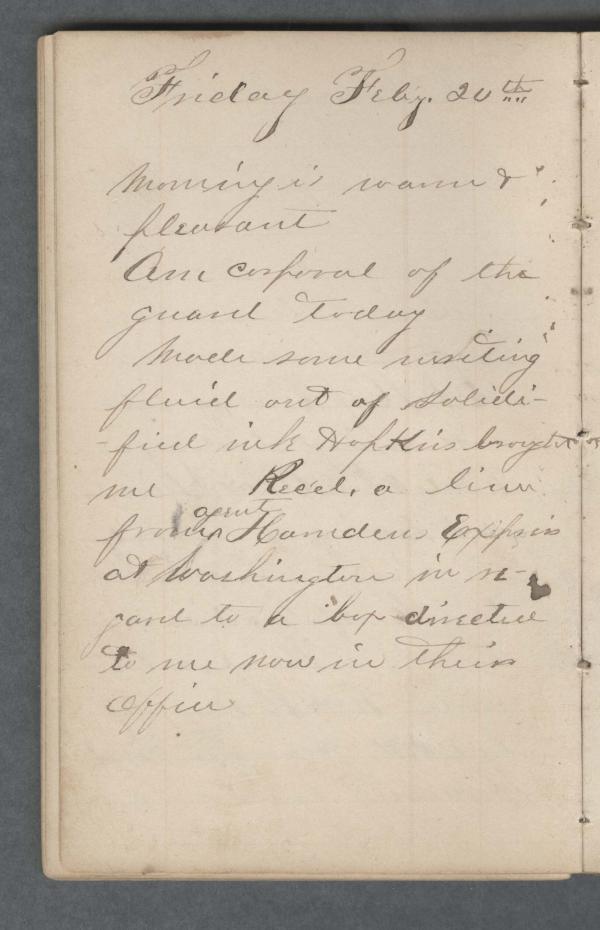 Friday Feby. 20th
Morning is warm &
pleasant
Am corporal of the
guard today
Made some writing
fluid out of solidi-
-fied ink Hopkins brought
me Reced. a line
from agent Harndens Express
at Washington in re-
gard to a box directed
to me now in their
office